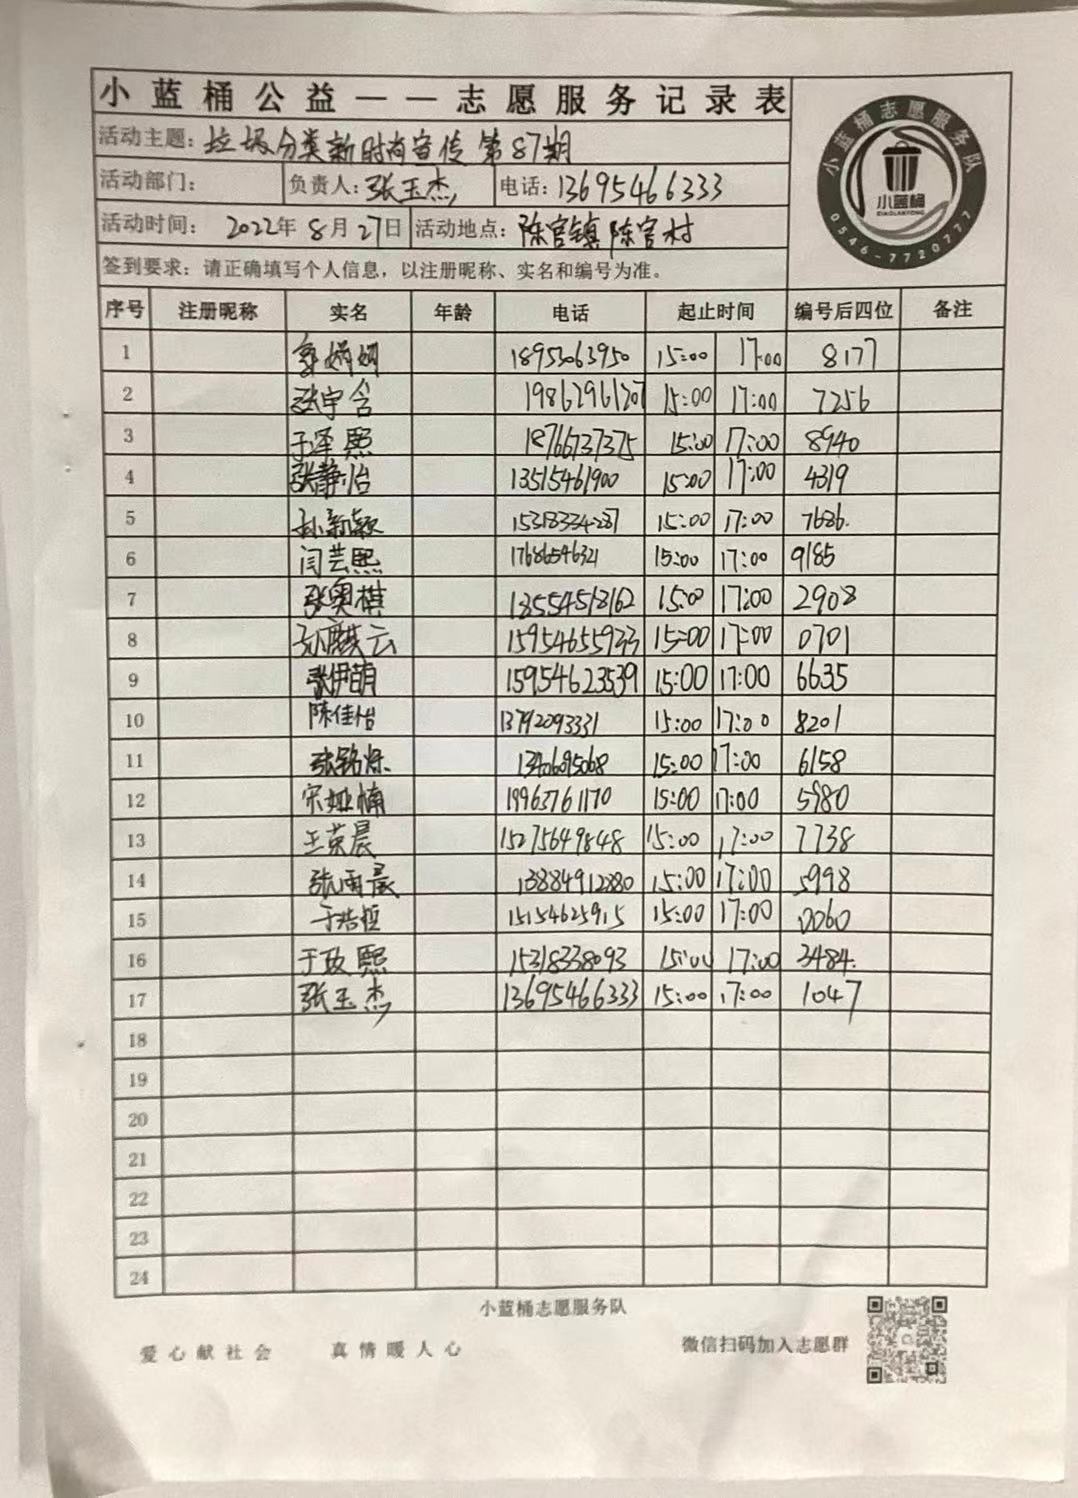 小蓝桶公益——志愿服务记录表
活动主题：垃圾分类新时尚宣传 第87期
活动部门： 负责人：张玉杰 电话：13695466333
活动时间： 2022年 8月27日 活动地点：陈官镇陈官村
签到要求：请正确填写个人信息，以注册昵称、实名和编号为准。
小蓝桶志愿服务队
小蓝桶
XIAOLANTONG
0546-7720777
序号 注册昵称 实名 年龄 电话 起止时间 编号后四位 备注
1 18953063950 15:00 17:00 8177
2 张宇含 19862961201 15:00 17:00 7256
3 于泽熙 18766737375 15:00 17:00 8940
4 张静怡 13515461900 15:00 17:00 4319
5 孙新颖 15318334287 15:00 17:00 7686.
6 闫芸熙 17686546321 15:00 17:00 9185
7 张奥棋 18554518162 15:00 17:00 2908
8 孙麒云 15954655933 15:00 17:00 0701
9 张伊萌 15954623539 15:00 17:00 6635
10 陈佳怡 13792093331 15:00 17:00 8201
11 张铭烁 15:00 17:00 6158
12 宋娅楠 19963761170 15:00 17:00 5980
13 王荣晨 15275649848 15:00 17:00 7738
14 张雨晨 13884912880 15:00 17:00 5998
15 于浩恒 15154625915 15:00 17:00 0060
16 于政熙 15318338093 15:00 17:00 3484.
17 张玉杰 13695466333 15:00 17:00 1047
18
19
20
21
22
23
24
小蓝桶志愿服务队
爱心献社会 真情暖人心 微信扫码加入志愿群